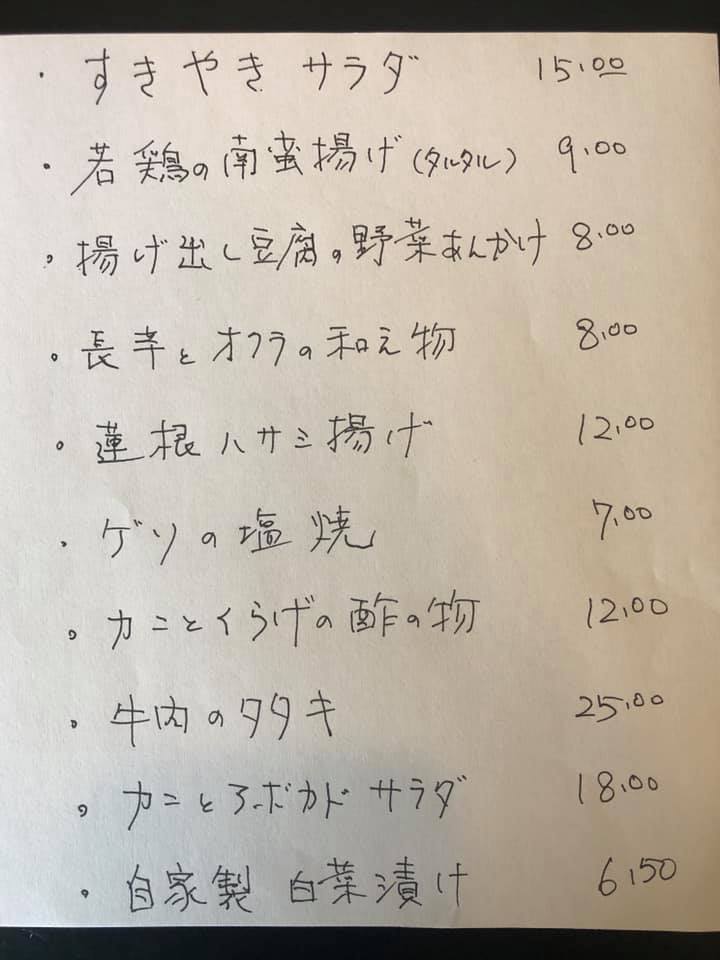 ・すきやき サラダ 15.00
・若鶏の南蛮揚げ(タルタル) 9.00
・揚げ出し豆腐の野菜あんかけ 8.00
・長芋とオクラの和え物 8.00
・蓮根ハサミ揚げ 12.00
・ゲソの塩焼 7.00
・カニとくらげの酢の物 12.00
・牛肉のタタキ 25.00
・カニとアボカド サラダ 18.00
・自家製 白菜漬け 6.50